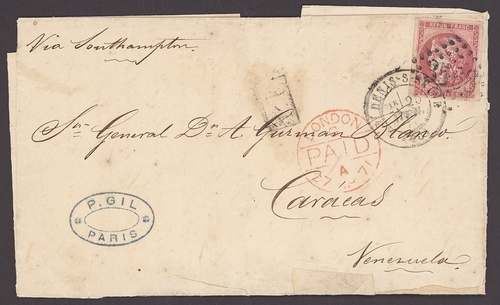 Via Southampton.
REPUB. FRANC.
ST DENIS-S-
Sr. General Dn. A. Guzman Blanco
LONDON
PAID
A
27 71
Caracas
Venezuela
P. GIL
PARIS